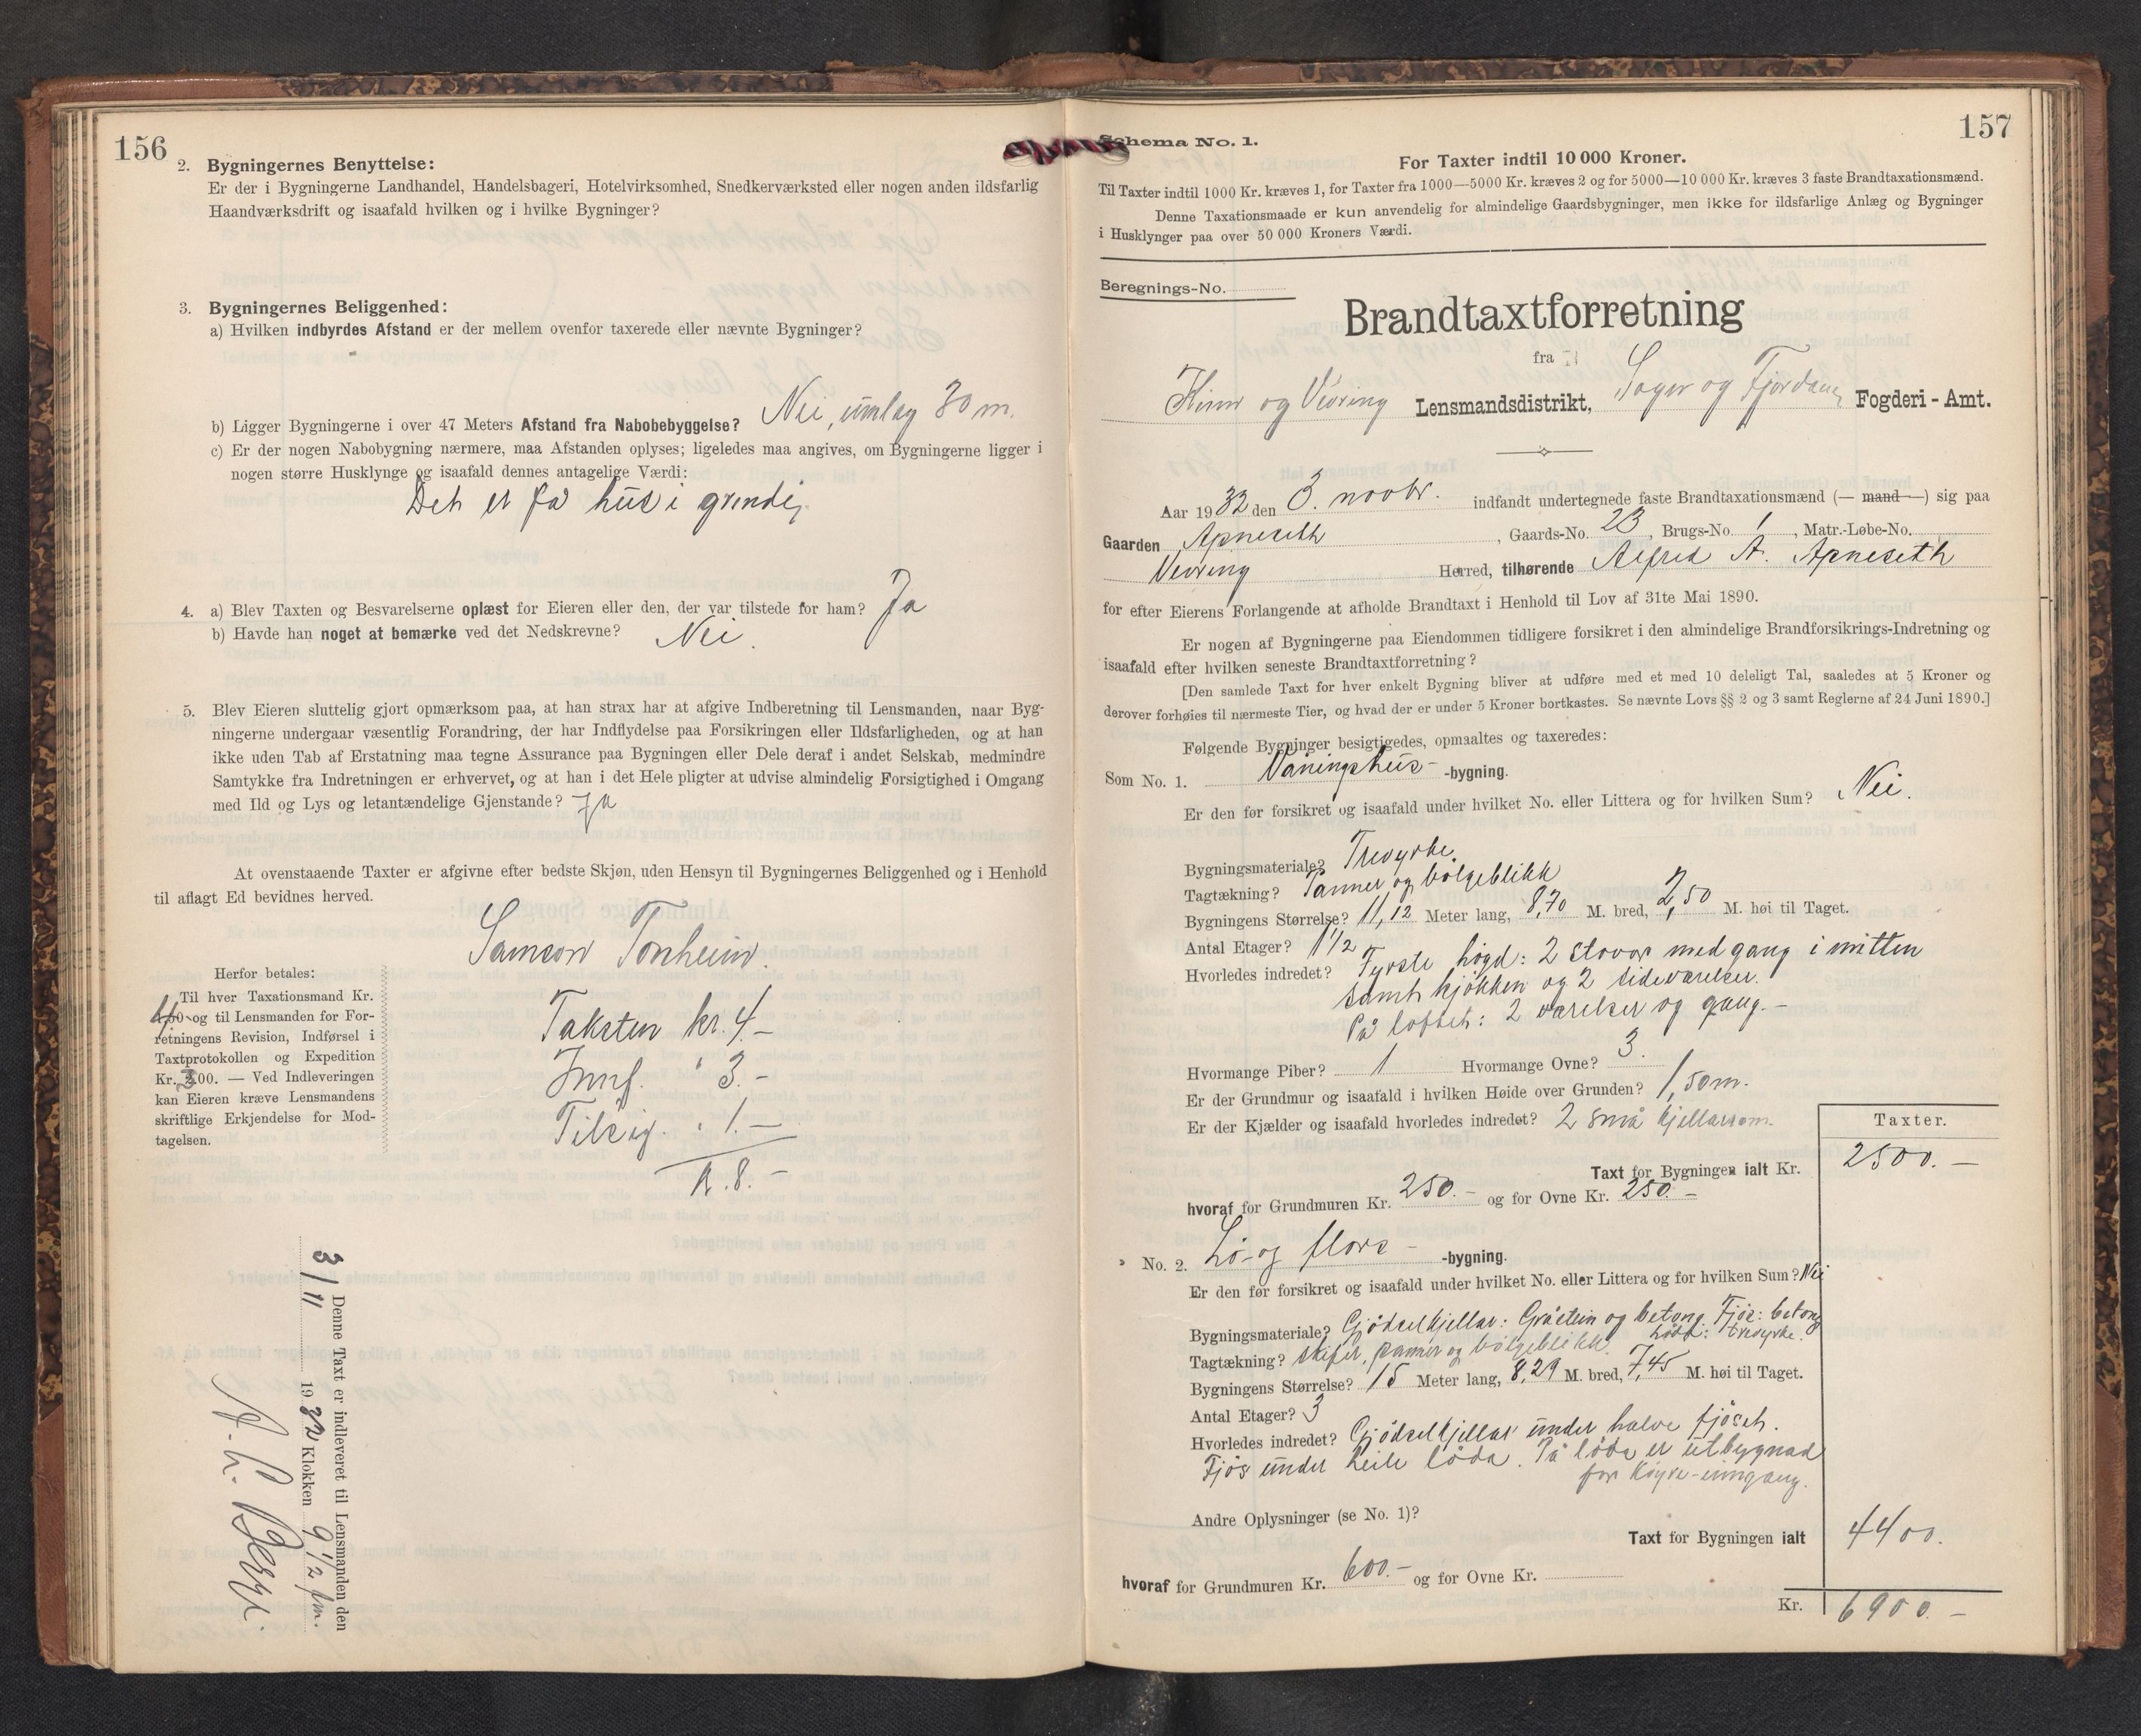 156
2. Bygningernes Benyttelse:
Er der i Bygningerne Landhandel, Handelsbageri, Hotelvirksomhed, Snedkerværksted eller nogen anden ildsfarlig
Haandværksdrift og isaafald hvilken og i hvilke Bygninger?
3. Bygningernes Beliggenhed:
a) Hvilken indbyrdes Afstand er der mellem ovenfor taxerede eller nævnte Bygninger?
b) Ligger Bygningerne i over 47 Meters Afstand fra Nabobebyggelse? Nei, umlag 30 m.
c) Er der nogen Nabobygning nærmere, maa Afstanden oplyses; ligeledes maa angives, om Bygningerne ligger i
nogen større Husklynge og isaafald dennes antagelige Værdi:
Det er få hus i grendi,
4. a) Blev Taxten og Besvarelserne oplæst for Eieren eller den, der var tilstede for ham? Ja
b) Havde han noget at bemærke ved det Nedskrevne? Nei.
5. Blev Eieren sluttelig gjort opmærksom paa, at han strax har at afgive Indberetning til Lensmanden, naar Byg-
ningerne undergaar væsentlig Forandring, der har Indflydelse paa Forsikringen eller Ildsfarligheden, og at han
ikke uden Tab af Erstatning maa tegne Assurance paa Bygningen eller Dele deraf i andet Selskab, medmindre
Samtykke fra Indretningen er erhvervet, og at han i det Hele pligter at udvise almindelig Forsigtighed i Omgang
med Ild og Lys og letantændelige Gjenstande? Ja
At ovenstaaende Taxter er afgivne efter bedste Skjøn, uden Hensyn til Bygningernes Beliggenhed og i Henhold
til aflagt Ed bevidnes herved.
Samson Tonheim.
Herfor betales:
Til hver Taxationsmand Kr.
4,00 og til Lensmanden for For-
retningens Revision, Indførsel i
Taxtprotokollen og Expedition
Kr. 3.00. — Ved Indleveringen
kan Eieren kræve Lensmandens
skriftlige Erkjendelse for Mod-
tagelsen.
Taksten kr. 4.-
Innf. " 3.-
Tilsig. " 1.-
K. 8.-
Denne Taxt er indleveret til Lensmanden den
3/11 1932 Klokken 9 1/2 fm.
157
Schema No. 1.
For Taxter indtil 10 000 Kroner.
Til Taxter indtil 1000 Kr. kræves 1, for Taxter fra 1000—5000 Kr. kræves 2 og for 5000—10 000 Kr. kræves 3 faste Brandtaxationsmænd.
Denne Taxationsmaade er kun anvendelig for almindelige Gaardsbygninger, men ikke for ildsfarlige Anlæg og Bygninger
i Husklynger paa over 50 000 Kroners Værdi.
Beregnings-No.
Brandtaxtforretning
fra
Kinn og Vevring Lensmandsdistrikt, Sogn og Fjordane Fogderi - Amt.
Aar 1932 den 3. novbr. indfandt undertegnede faste Brandtaxationsmænd (— mand —) sig paa
Gaarden Apneseth, Gaards-No. 23, Brugs-No. 1, Matr.-Løbe-No.
Vevring Herred, tilhørende Alfred A. Apneseth
for efter Eierens Forlangende at afholde Brandtaxt i Henhold til Lov af 31te Mai 1890.
Er nogen af Bygningerne paa Eiendommen tidligere forsikret i den almindelige Brandforsikrings-Indretning og
isaafald efter hvilken seneste Brandtaxtforretning?
[Den samlede Taxt for hver enkelt Bygning bliver at udføre med et med 10 deleligt Tal, saaledes at 5 Kroner og
derover forhøies til nærmeste Tier, og hvad der er under 5 Kroner bortkastes. Se nævnte Lovs §§ 2 og 3 samt Reglerne af 24 Juni 1890.]
Følgende Bygninger besigtigedes, opmaaltes og taxeredes:
Som No. 1. Våningshus- -bygning.
Er den før forsikret og isaafald under hvilket No. eller Littera og for hvilken Sum? Nei.
Bygningsmateriale? Trevyrke.
Tagtækning? Panner og bølgeblikk
Bygningens Størrelse? 11,12 Meter lang, 8,70 M. bred, 2,50 M. høi til Taget.
Antal Etager? 1 1/2
Hvorledes indredet? Fyrste høgd: 2 stover med gang i mitten
samt kjøkken og 2 sideværelser.
På loftet: 2 værelser og gang.-
Hvormange Piber? 1 Hvormange Ovne? 3.
Er der Grundmur og isaafald i hvilken Høide over Grunden? 1,50 m.
Er der Kjælder og isaafald hvorledes indredet? 2 små kjellarrom.
Taxter.
Taxt for Bygningen ialt Kr. 2500.—
hvoraf for Grundmuren Kr. 250.- og for Ovne Kr. 250.-
No. 2. Lø- og flors- -bygning.
Er den før forsikret og isaafald under hvilket No. eller Littera og for hvilken Sum? Nei
Bygningsmateriale? Gjødselkjellar: Gråstein og betong. Fjøs: betong
Løda: trevyrke.
Tagtækning? Skifer, panner og bølgeblikk.
Bygningens Størrelse? 15 Meter lang, 8,29 M. bred, 7,45 M. høi til Taget.
Antal Etager? 3
Hvorledes indredet? Gjødselkjellar under halve fjøset.
Fjøs under heile løda. På løda er utbygnad
for køyre-inngang.
Andre Oplysninger (se No. 1)?
Taxt for Bygningen ialt 4400.
hvoraf for Grundmuren Kr. 600.- og for Ovne Kr.
Kr. 6900.-